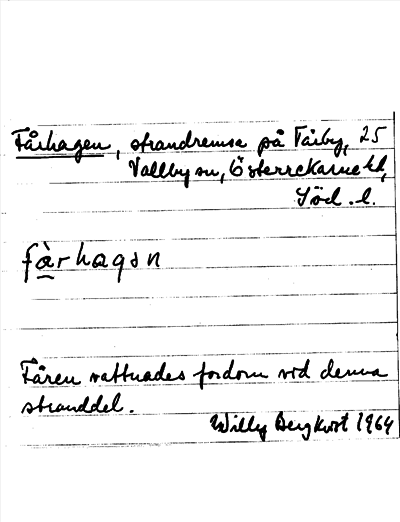 Fårhagen, strandremsa på Tärby, 25
Vallby sn, Österrekarne hd,
Söd. l.
fàrhagən
Fåren vattnades fordom vid denna
stranddel.
Willy Bergkvist 1964